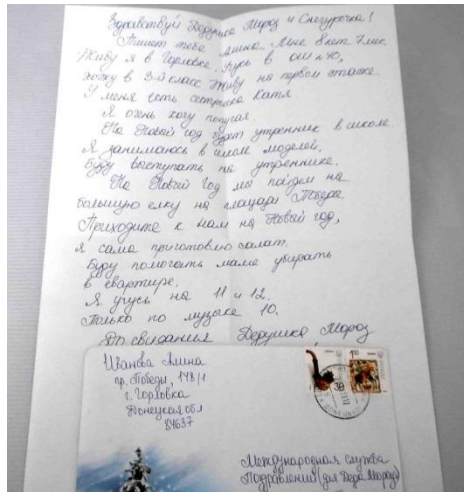 Здравствуй Дедушка Мороз и Снегурочка!
Пишет тебе Алина. Мне 8 лет 7 мес.
Живу я в Горловке. Учусь в ОШ №40,
хожу в 3-й класс. Живу на первом этаже.
У меня есть сестричка Катя
Я очень хочу попугая.
На Новый год будет утренник в школе.
Я занимаюсь в школе моделей.
Буду выступать на утреннике.
На Новый Год мы пойдем на
большую елку на площади Победа
Приходите к нам на Новый год,
я сама приготовлю салат.
Буду помогать маме убирать
в квартире.
Я учусь на 11 и 12.
Только по музыке 10.
До свидания Дедушка Мороз
Иванова Алина
пр. Победы, 148/1
г. Горловка
Донецкая обл
84637
Международная служба
Поздравлений (для Деда Мороза)